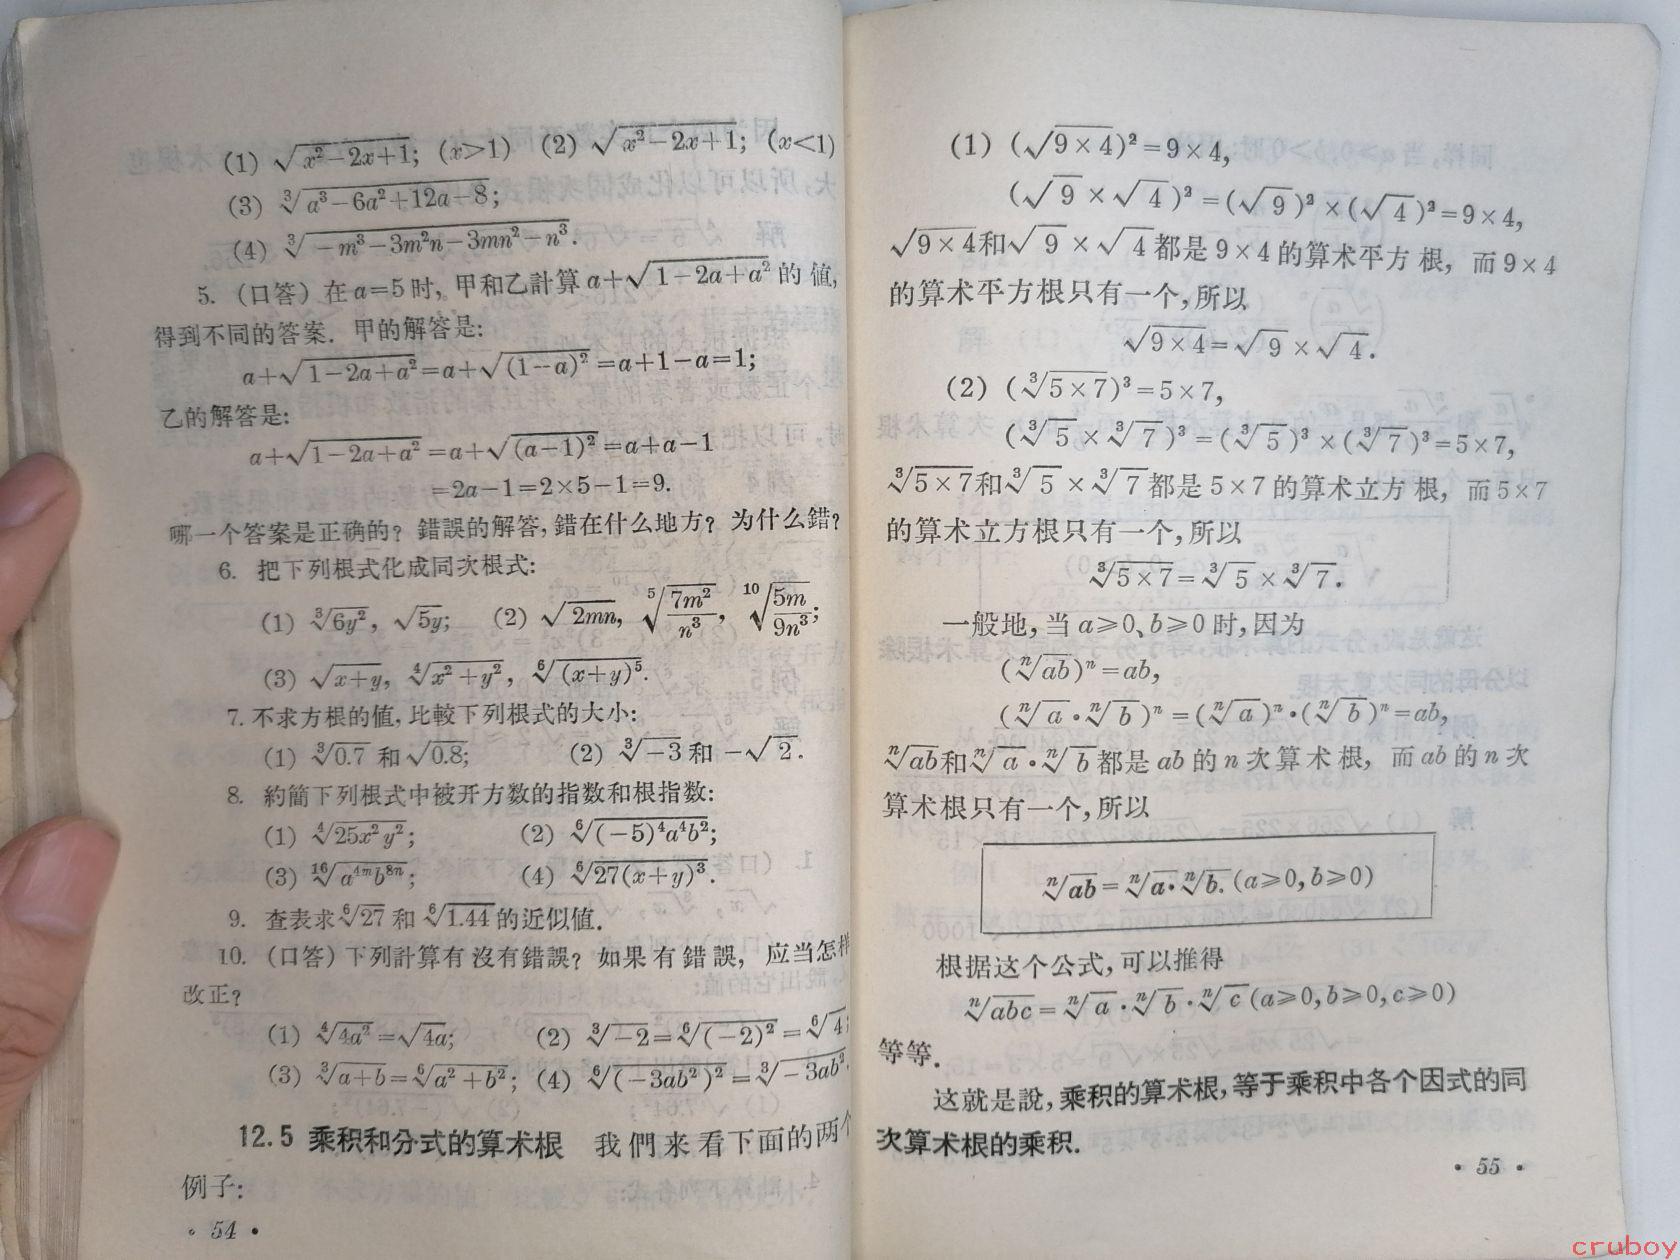 (1) √(x²−2x+1); (x>1) (2) √(x²−2x+1); (x<1)
(3) ∛(a³−6a²+12a−8);
(4) ∛(−m³−3m²n−3mn²−n³).
5. (口答) 在 a=5 时, 甲和乙計算 a+√(1−2a+a²) 的值,
得到不同的答案. 甲的解答是:
a+√(1−2a+a²)=a+√((1−a)²)=a+1−a=1;
乙的解答是:
a+√(1−2a+a²)=a+√((a−1)²)=a+a−1
=2a−1=2×5−1=9.
哪一个答案是正确的? 錯誤的解答, 錯在什么地方? 为什么錯?
6. 把下列根式化成同次根式:
(1) ∛(6y²), √(5y); (2) √(2mn), ⁵√(7m²/n³), ¹⁰√(5m/9n³);
(3) √(x+y), ∜(x²+y²), ⁶√((x+y)⁵).
7. 不求方根的值, 比較下列根式的大小:
(1) ∛0.7 和 √0.8; (2) ∛(−3) 和 −√2.
8. 約簡下列根式中被开方数的指数和根指数:
(1) ∜(25x²y²); (2) ⁶√((−5)⁴a⁴b²);
(3) ¹⁶√(a⁴ᵐb⁸ⁿ); (4) ⁶√(27(x+y)³).
9. 查表求 ⁶√27 和 ⁶√1.44 的近似值.
10. (口答) 下列計算有沒有錯誤? 如果有錯誤, 应当怎样
改正?
(1) ∜(4a²)=√(4a); (2) ∛(−2)=⁶√((−2)²)=⁶√4;
(3) ∛(a+b)=⁶√(a²+b²); (4) ⁶√((−3ab²)²)=∛(−3ab²).
12.5 乘积和分式的算术根 我們来看下面的两个
例子:
• 54 •
(1) (√(9×4))²=9×4,
(√9×√4)²=(√9)²×(√4)²=9×4,
√(9×4)和√9×√4都是 9×4 的算术平方根, 而 9×4
的算术平方根只有一个, 所以
√(9×4)=√9×√4.
(2) (∛(5×7))³=5×7,
(∛5×∛7)³=(∛5)³×(∛7)³=5×7,
∛(5×7)和∛5×∛7都是 5×7 的算术立方根, 而 5×7
的算术立方根只有一个, 所以
∛(5×7)=∛5×∛7.
一般地, 当 a⩾0、b⩾0 时, 因为
(ⁿ√(ab))ⁿ=ab,
(ⁿ√a·ⁿ√b)ⁿ=(ⁿ√a)ⁿ·(ⁿ√b)ⁿ=ab,
ⁿ√(ab)和ⁿ√a·ⁿ√b都是 ab 的 n 次算术根, 而 ab 的 n 次
算术根只有一个, 所以
ⁿ√(ab)=ⁿ√a·ⁿ√b. (a⩾0, b⩾0)
根据这个公式, 可以推得
ⁿ√(abc)=ⁿ√a·ⁿ√b·ⁿ√c (a⩾0, b⩾0, c⩾0)
等等.
这就是說, 乘积的算术根, 等于乘积中各个因式的同
次算术根的乘积.
• 55 •
cruboy